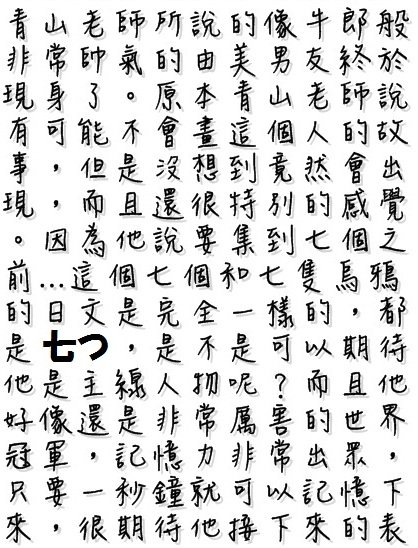 青山老師所說的像牛郎般
非常帥氣的由美男友終於
現身了。原本青山老師說
有可能不會畫這個人的故
事，但是沒想到竟然會出
現，而且還很特別的感覺
。因為他說要集到七個之
前…這個七個和七隻烏鴉
的日文是完全一樣的，都
是七つ，是不是可以期待
他是主線人物呢？而且他
好像還是非常厲害的世界
冠軍，記憶力非常出眾，
只要一秒鐘就可以記憶下
來，很期待他接下來的表